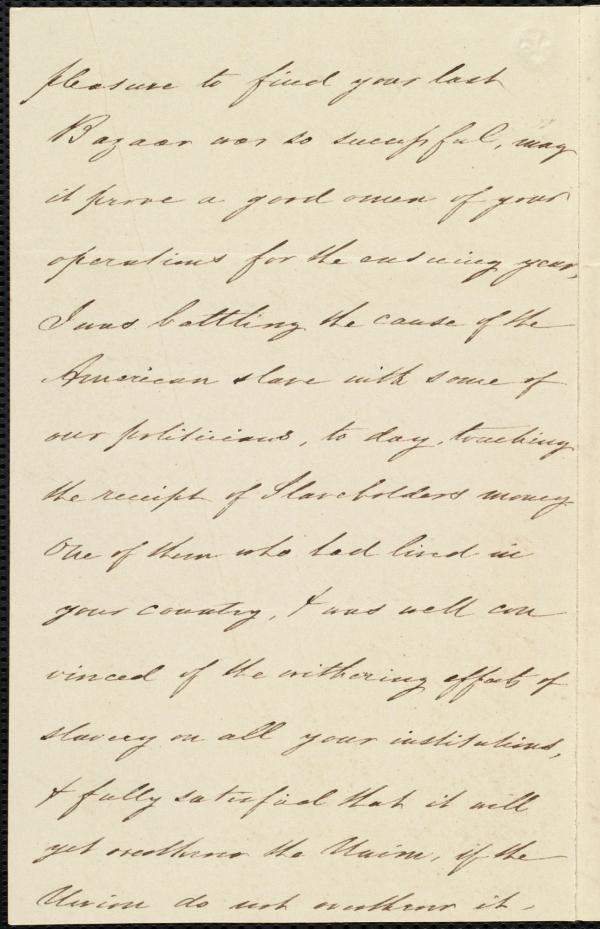 pleasure to find your last
Bazaar was so successful, may
it prove a good omen of your
operations for the ensuing year,
I was battling the cause of the
American slave with some of
our politicians, to day, touching
the receipt of Slaveholders money
One of them who had lived in
your country, & was well con
vinced of the withering effects of
slavery on all your institutions,
& fully satisfied that it will
yet overthrow the Union, if the
Union do not overthrow it,